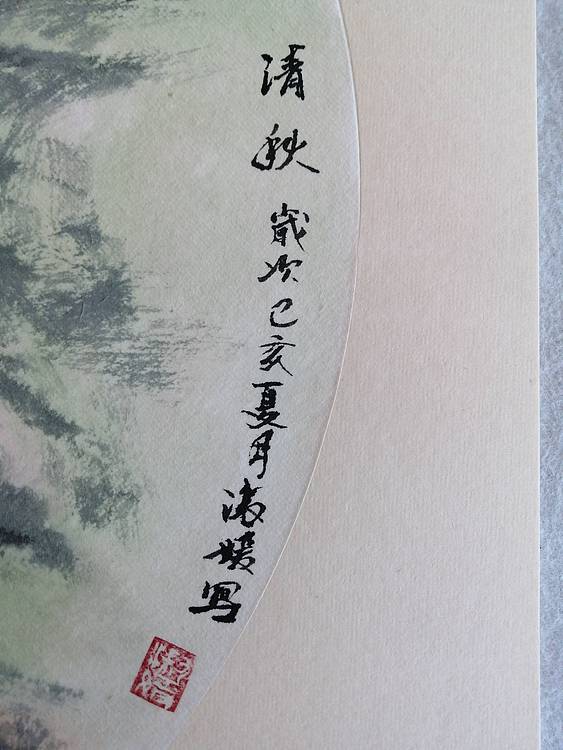 清秋 歲次己亥夏月淑媛寫